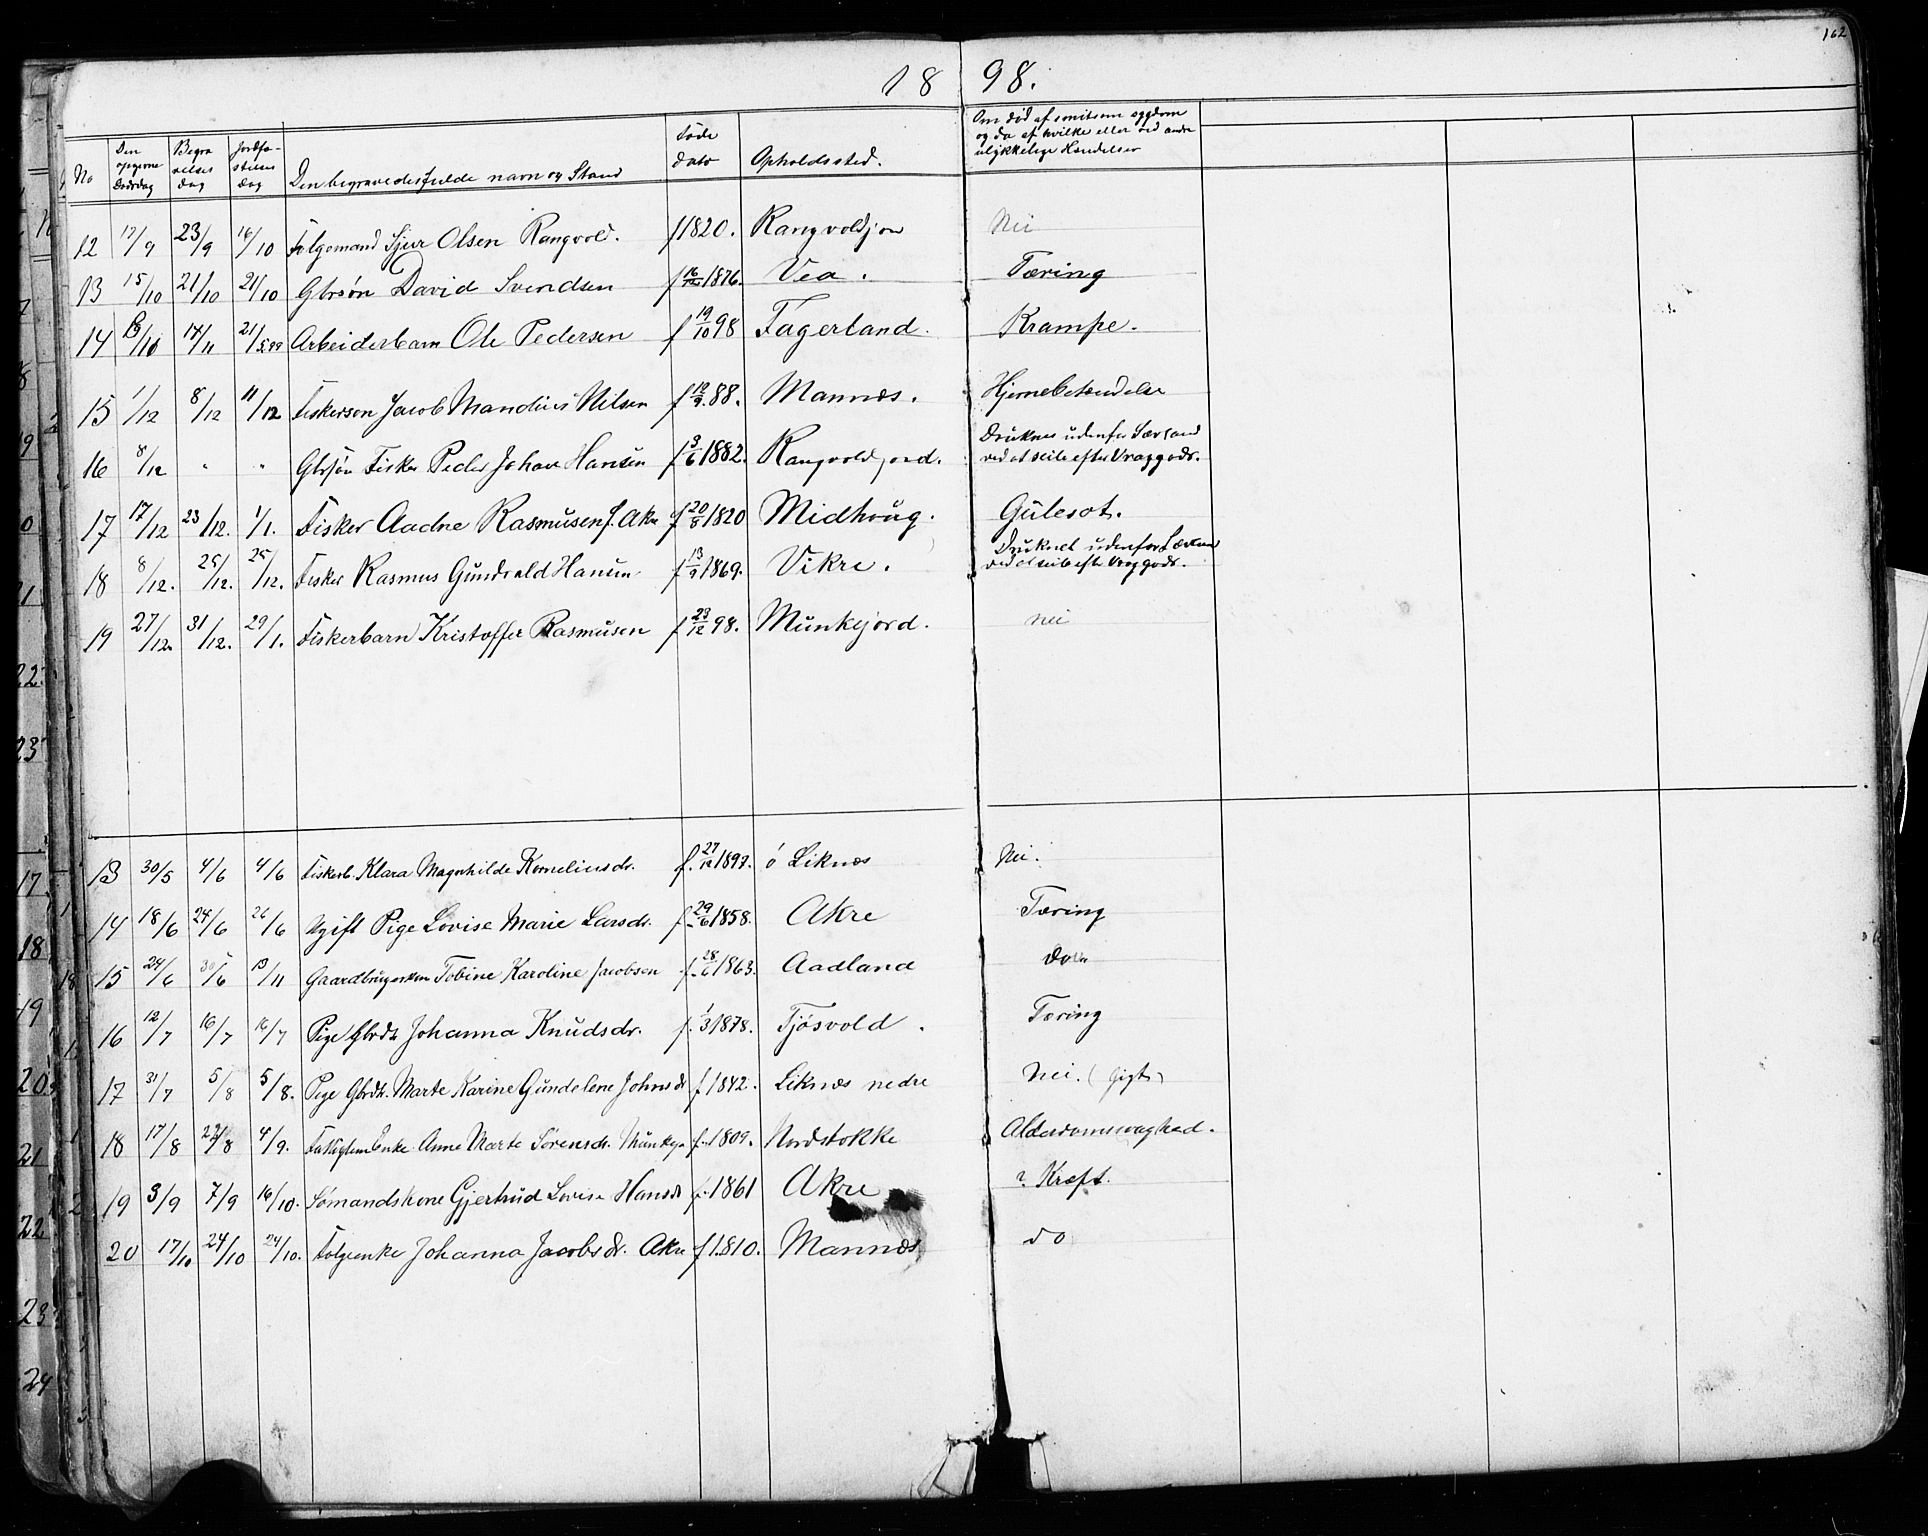 162
18 98.
No | Den opgivne Dødsdag | Begravelses Dag | Jordfæstelses Dag | Den begravedes fulde navn og Stand | Føde Dato | Opholdssted. | Om død af smitsom sygdom og da af hvilke eller ved andre ulykkelige Hændelser
12 | 17/9 | 23/9 | 16/10 | Følgemand Sjur Olsen Rangvold. | f 1820. | Rangvoldjor | Nei
13 | 15/10 | 21/10 | 21/10 | Gbrsøn David Svendsen | f 16/12 1876. | Vea. | Tæring
14 | /10 | 14/11 | 21/5.99 | Arbeiderbarn Ole Pedersen | f 19/10 98 | Fagerland. | Krampe.
15 | 1/12 | 8/12 | 11/12 | Fiskersøn Jacob Mandius Nilsen | f 12/9.88. | Mannes. | Hjernebetændelse
16 | 8/12 | " | " | Gbrsøn Fisker Peder Johan Hansen | f 3/6 1882. | Rangvoldjord. | Druknet udenfor Sævland ved at seile efter Vraggods.
17 | 17/12 | 23/12. | 1/1. | Fisker Aadne Rasmusen f. Akre | f 20/8 1820 | Midhoug. | Gulesot.
18 | 8/12. | 25/12. | 25/12. | Fisker Rasmus Gundvald Hansen | f 13/9 1869. | Vikre. | Druknet udenfor Sævland ved at seile efter Vraggods.
19 | 27/12. | 31/12. | 29/1. | Fiskerbarn Kristoffer Rasmusen | f 23/12 98. | Munkejord. | nei
13 | 30/5 | 4/6 | 4/6 | Fiskerb. Klara Magnhilde Korneliusdr. | f. 27/12 1897. | ø Liknes | Nei.
14 | 18/6 | 24/6 | 26/6 | Ugift Pige Lovise Marie Larsdr. | f 29/6 1858. | Akre | Tæring
15 | 24/6 | 30/6 | 13/11 | Gaardbrugerkone Tobine Karoline Jacobsen | f. 28/6 1863. | Aadland | do
16 | 12/7 | 16/7 | 16/7 | Pige Gbrdt. Johanna Knudsdr. | f. 1/3 1878. | Tjøsvold. | Tæring
17 | 31/7 | 5/8 | 5/8. | Pige Gbrdt. Marte Karine Gundelene Johnsdr | f. 1842. | Liknes nedre | Nei. (Gigt)
18 | 17/8 | 22/8 | 4/9. | Fattiglem Enke Anne Marte Sørensdr. Munkejo | f. 1809. | Nordstokke | Alderdomssvaghed.
19 | 3/9 | 7/9 | 16/10. | Sømandskone Gjertrud Lovise Hansdr | f. 1861 | Akre | ? Kræft.
20 | 17/10 | 24/10 | 24/10. | Følgeenke Johanna Jacobsdr. Akre | f 1810. | Mannes | do